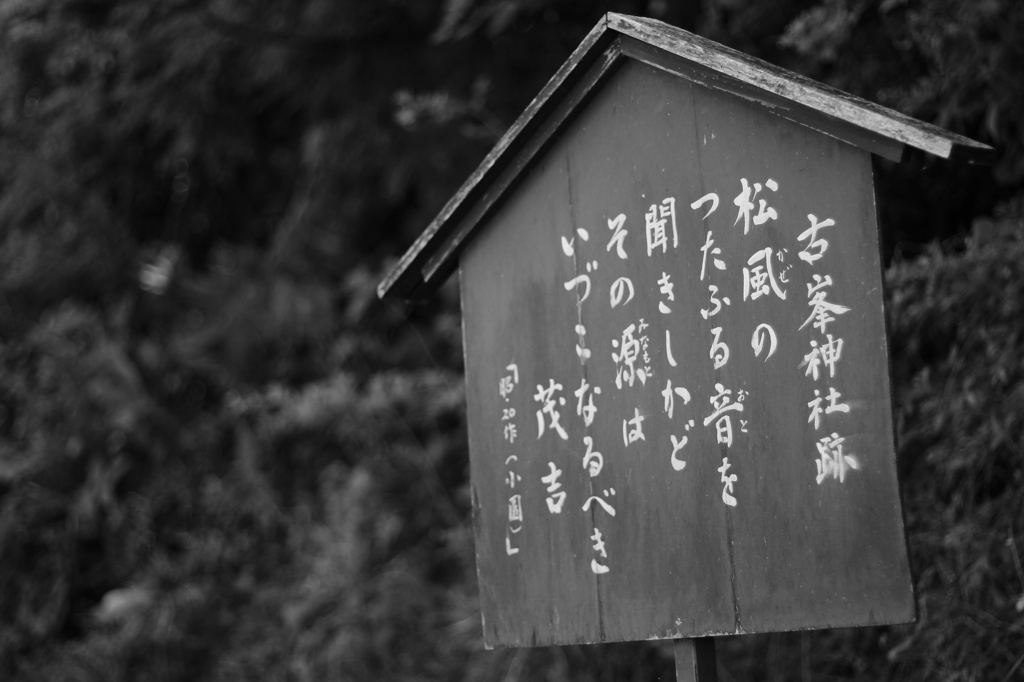 古峯神社跡
松風の
つたふる音を
聞きしかど
その源は
いづこなるべき
茂吉
「昭・20作(小園)」